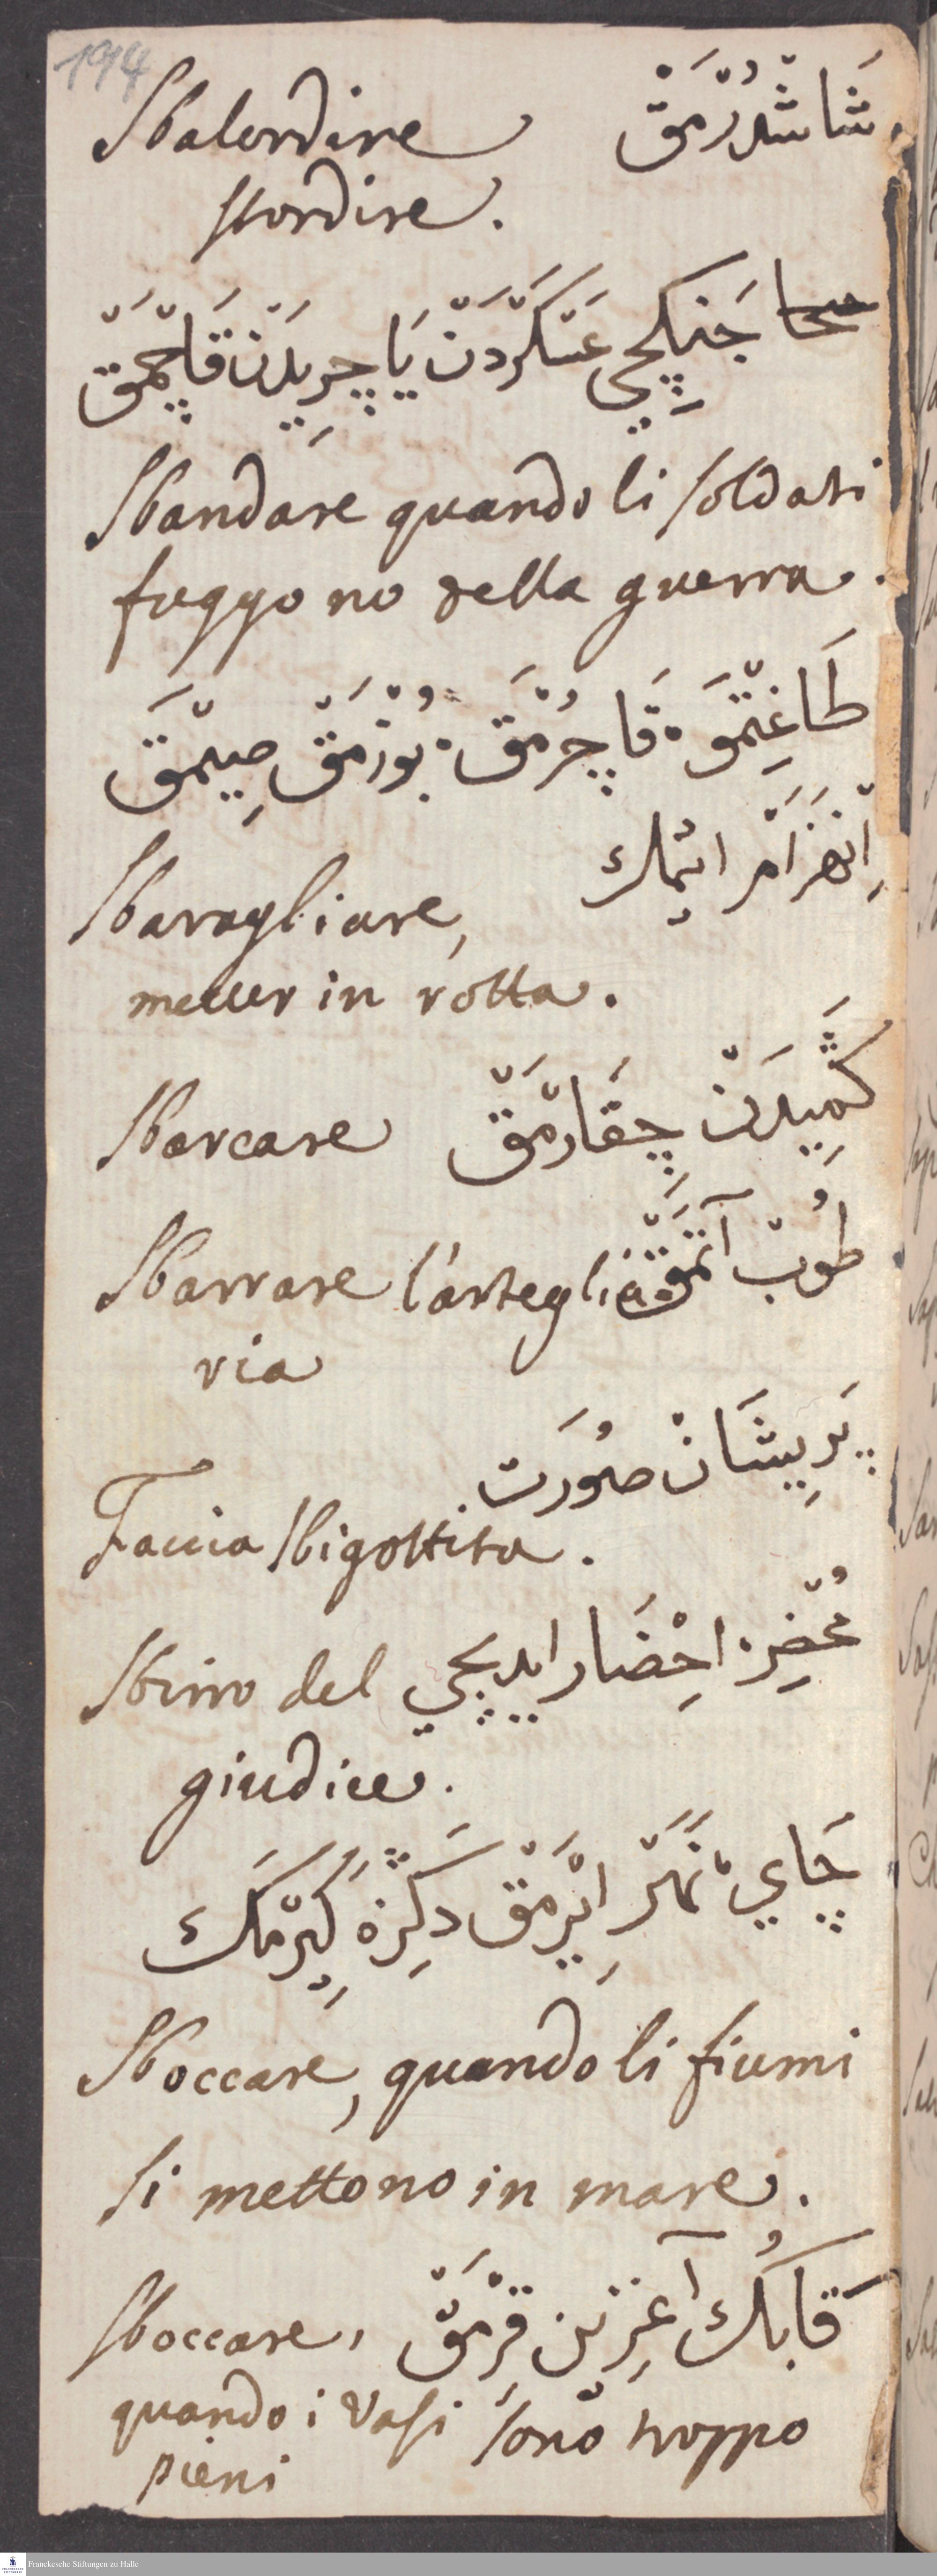 194
Sbalordire شَاشْدُرْمَقْ
stordire.
جَنِكْچِي عَسْكَرْدَنْ يَا چَرِيدَنْ قَاچْمَقْ
Sbandare quando li soldati
fuggono della guerra.
طَاغِتْمَق، قَاچُرْمَق، بُوزْمَقْ صِيمَق
اِنْهِزَامْ ايتمك
Sbaragliare,
metter in rotta.
Sbarcare كَمِيدَنْ چِقَارْمَقْ
Sbarrare l'arteglia طُوبْ آتْمَقْ
ria
پَرِيشَانْ صُورَت
Faccia sbigottita.
Sbirro del مُحْضِر، اِحْضَار ايديجي
giudice.
چَاي، نَهَرْ اِيرْمَقْ دَكِزَه كِيرْمَك
Sboccare, quando li fiumi
si mettono in mare.
Sboccare, قَابُكْ آغِزِنْدَن
quando i vasi sono troppo
pieni
Franckesche Stiftungen zu Halle